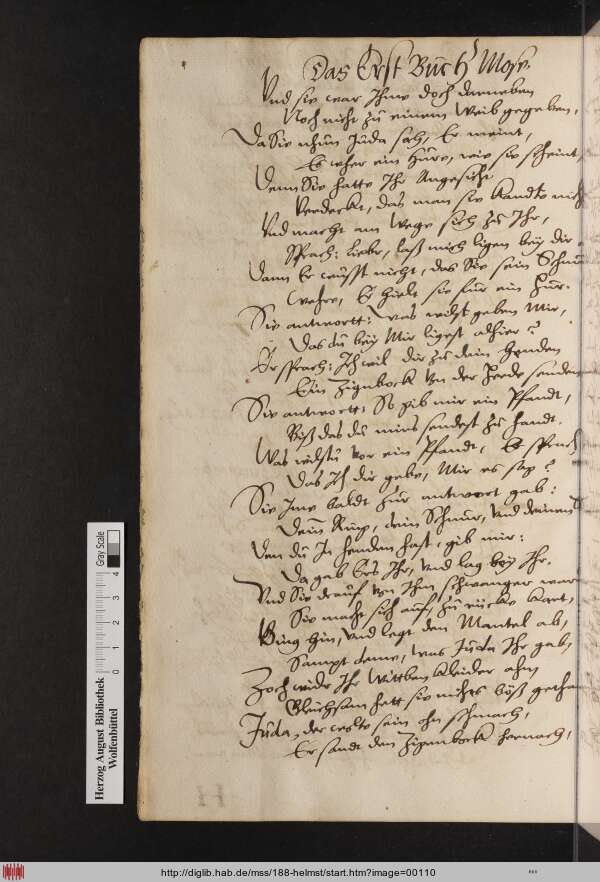 Das Erst Buch Mose.
Vnd sie war Ihme doch darneben
Noch nicht zu einem Weib gegeben,
Da Sie nhun Juda sah, Er meint,
Es wher ein Hure, wie sie scheint,
Denn Sie hatte Ihr Angesicht
Verdeckt, das man sie kandte nich
Vnd macht am Wege sich zu Ihr,
Sprach: Liebe, laß mich ligen bey dir
Dann Er wusst nicht, das Sie sein Schnur
Wehre, Er hielt sie fur ein Hur.
Sie antwortt: Was wilst geben Mir,
Das du bey Mir ligest alhier?
Er sprach: Ich wil dir zu dein Henden
Ein Zignbock von der Herde senden
Sie antwortt: So gib mir ein Pfandt,
Biß das du mirs sendest zu handt.
Was wilstu vor ein Pfandt, Er sprach
Das Ich dir gebe, Mir es sag?
Sie Ime baldt zur antwort gab:
Dein Ring, dein Schnur, vnd deinen
Den du In henden hast, gib mir:
Da gab Ers Ihr, vnd lag bey Ihr.
Vnd Sie drauf von Ihm schwanger war
Sie macht sich auf, zu rucke
Ging hin, vnd legt den Mantel ab,
Sampt deme, was Juda Ihr gab,
Zoch wider Ihr Wittben kleider ahn
Gleichsam hett sie nichts böß getha
Juda, der wolte sein ohn schmach,
Er sandt den Zignbock hernach,
Herzog August Bibliothek
Wolfenbüttel
Gray Scale
0 1 2 3 4
http://diglib.hab.de/mss/188-helmst/start.htm?image=00110